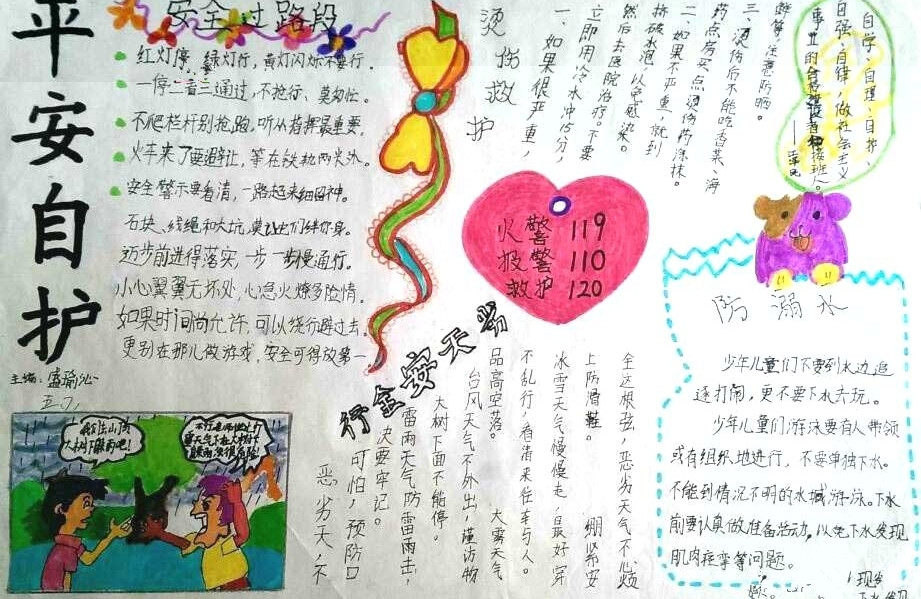 平安自护
主编:盛瑜沁
五.7.
安全过路段
红灯停,绿灯行,黄灯闪烁不要行.
一停二看三通过,不抢行、莫匆忙.
不爬栏杆别抢跑,听从指挥最重要.
火车来了要避让,等在铁轨两米外.
安全警示要看清,一路起来细留神.
石块、线绳和大坑,莫让它们绊你身.
迈步前进得落实,一步一步慢通行.
小心翼翼无坏处,心急火燎多险情.
如果时间尚允许,可以绕行避过去.
更别在那儿做游戏,安全可得放第一.
烫伤救护
一、如果很严重,
立即用冷水冲15分,
然后去医院治疗。不要
挤破水泡,以免感染。
二、如果不严重,就到
药店房买点烫伤药涂抹。
三、烫伤后不能吃香菜、海
鲜等,注意防晒。
自学、自理、自护、
自强、自律,做社会主义
事业的合格建设者和接班人。
火警 119
报警 110
救护 120
防溺水
少年儿童们不要到水边追
逐打闹,更不要下水去玩。
少年儿童们游泳要有人带领
或有组织地进行,不要单独下水。
不能到情况不明的水域游泳。下水
前要认真做准备活动,以免下水发现
肌肉痉挛等问题。
恶劣天气安全行
恶劣天,不
可怕,预防口
决要牢记。
雷雨天气防雷雨击,
大树下面不能停。
台风天气不外出,谨访物
品高空落。 大雾天气
不乱行,看清来往车与人。
冰雪天气慢慢走,最好穿
上防滑鞋。 绷紧安
全这根弦,恶劣天气不心烦
我们去山顶
大树下躲雨吧!